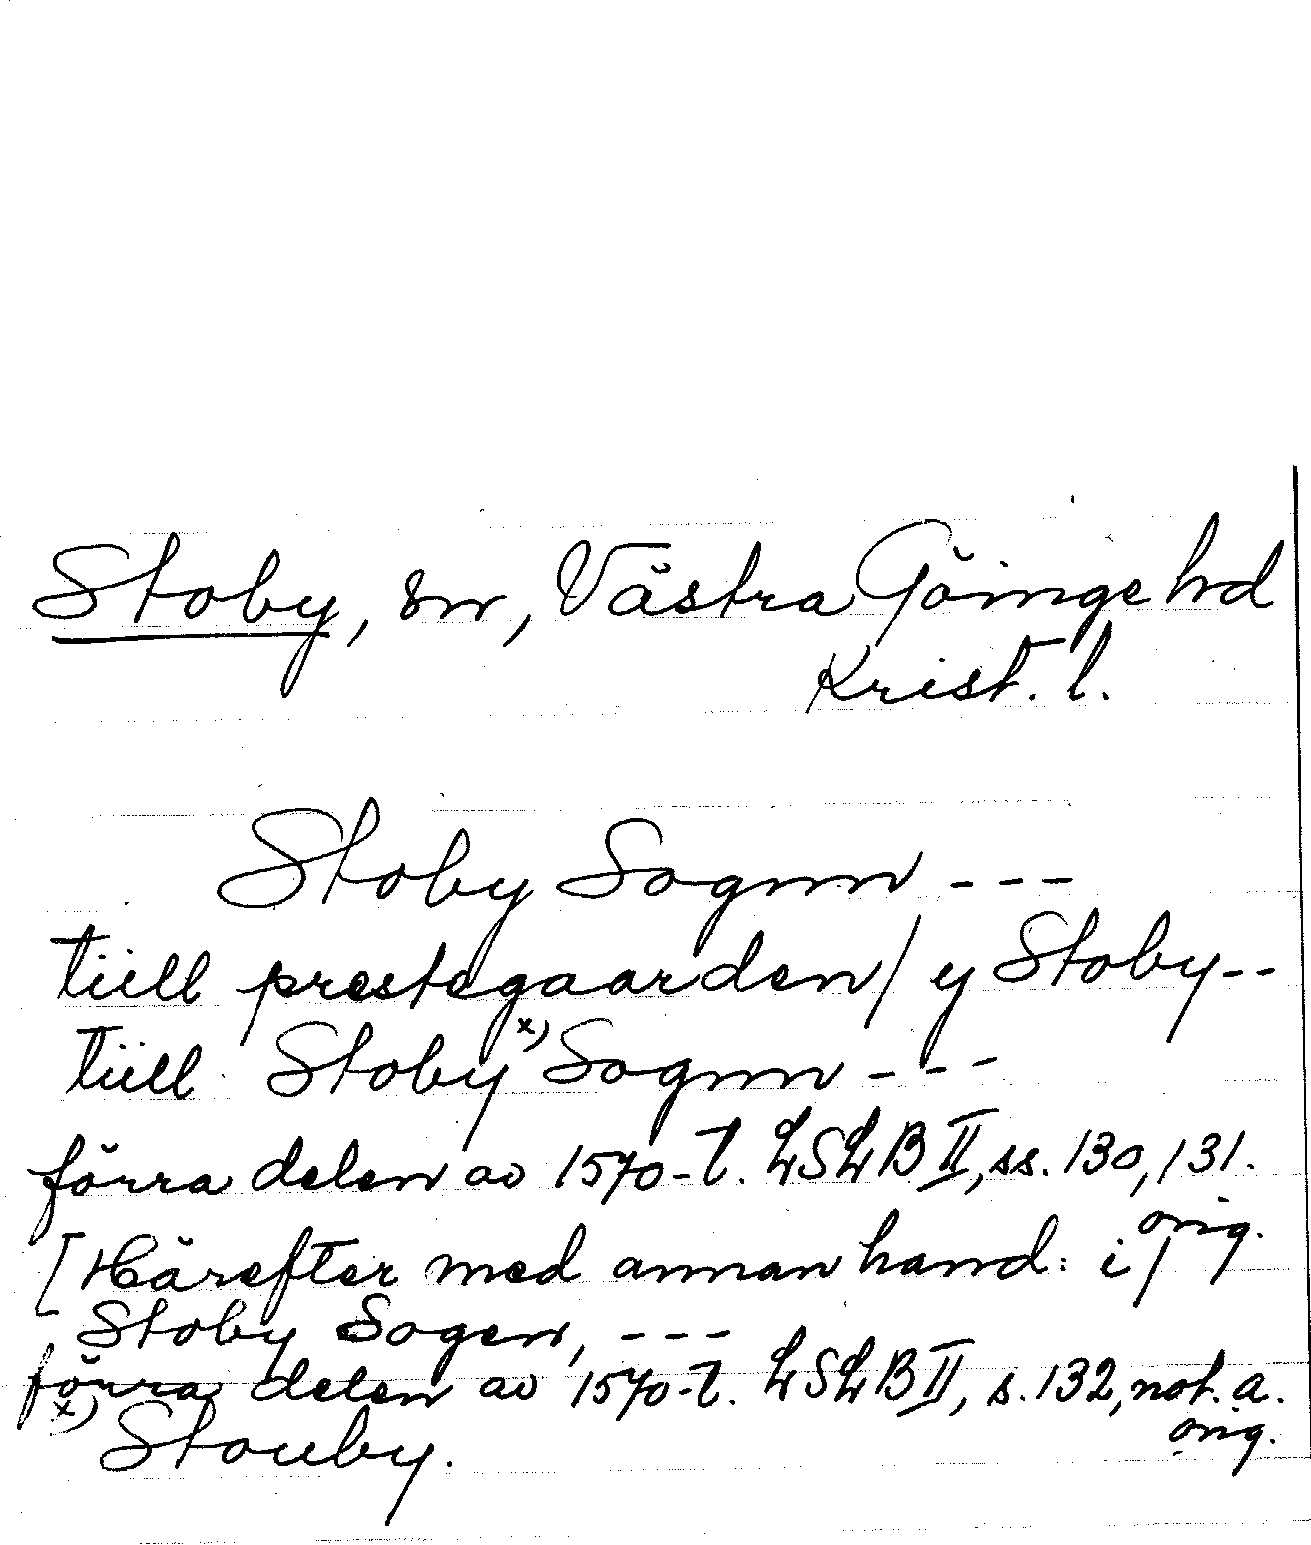 Stoby, sn, Västra Göinge hd
Krist. l.
Stoby Sognn ---
tiill prestegaarden / y Stoby--
tiill Stoby x) Sognn ---
förra delen av 1570-t. LSLB II, ss. 130, 131.
orig.
[Härefter med annan hand: i /
Stoby Sogen, ---
förra delen av 1570-t. LSLB II, s. 132, not. a.
orig.
x) Stouby.